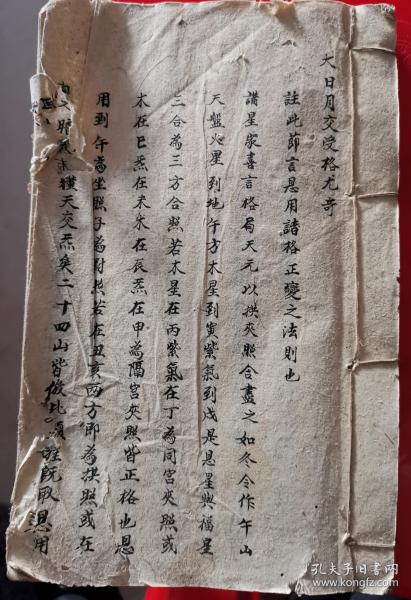 大日月交受格尤奇
註此節言恩用諸格正變之法則也
諸星家喜言格局天元以拱夾照合盡之如冬令作午山
天盤火星到地午方木星到寅紫氣到戌是恩星與福星
三合為三方合照若木星在丙紫氣在丁為同宮夾照或
木在巳炁在未木在辰炁在申為隔宮夾照皆正格也恩
用到午為坐照子為對照若在丑亥兩方即為拱照或在
天交炁矣二十四山皆倣此 既取恩用
孔夫子旧书网
www.kongfz.com